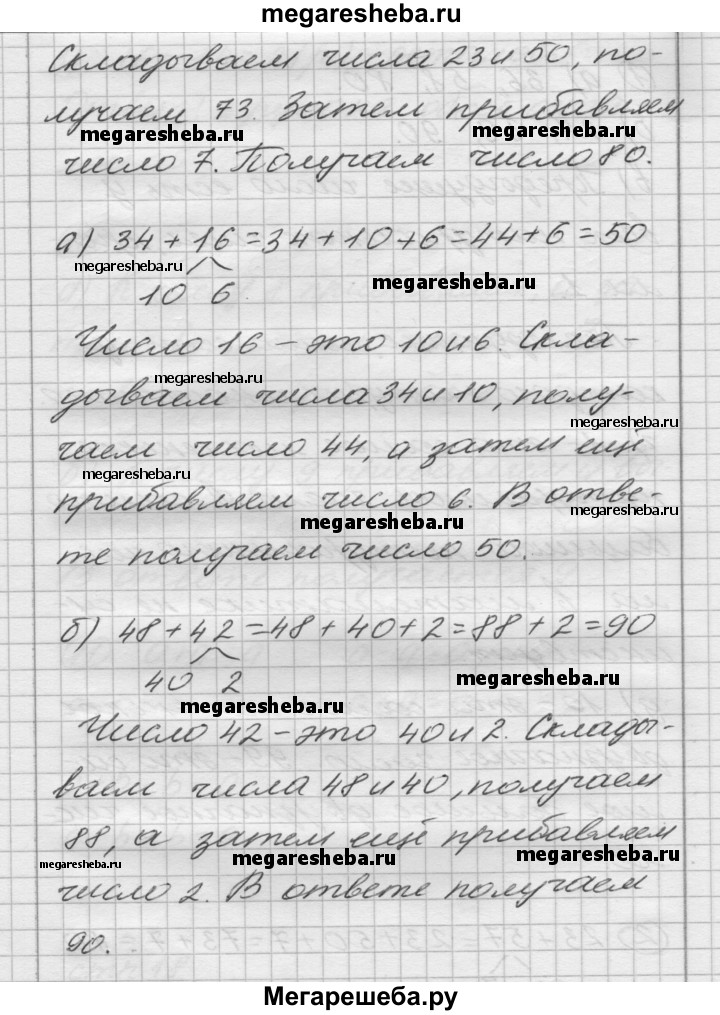 megaresheba.ru
Складываем числа 23 и 50, по-
лучаем 73. Затем прибавляем
megaresheba.ru megaresheba.ru
число 7. Получаем число 80.
а) 34 + 16 = 34 + 10 + 6 = 44 + 6 = 50
megaresheba.ru
10 6
megaresheba.ru
Число 16 – это 10 и 6. Скла-
megaresheba.ru
megaresheba.ru
дываем числа 34 и 10, полу-
megaresheba.ru
чаем число 44, а затем ещё
megaresheba.ru
прибавляем число 6. В отве-
megaresheba.ru
megaresheba.ru
те получаем число 50.
б) 48 + 42 = 48 + 40 + 2 = 88 + 2 = 90
40 2
megaresheba.ru
megaresheba.ru
Число 42 – это 40 и 2. Склады-
ваем числа 48 и 40, получаем
88, а затем ещё прибавляем
megaresheba.ru megaresheba.ru megaresheba.ru
число 2. В ответе получаем
90.
Мегарешеба.ру